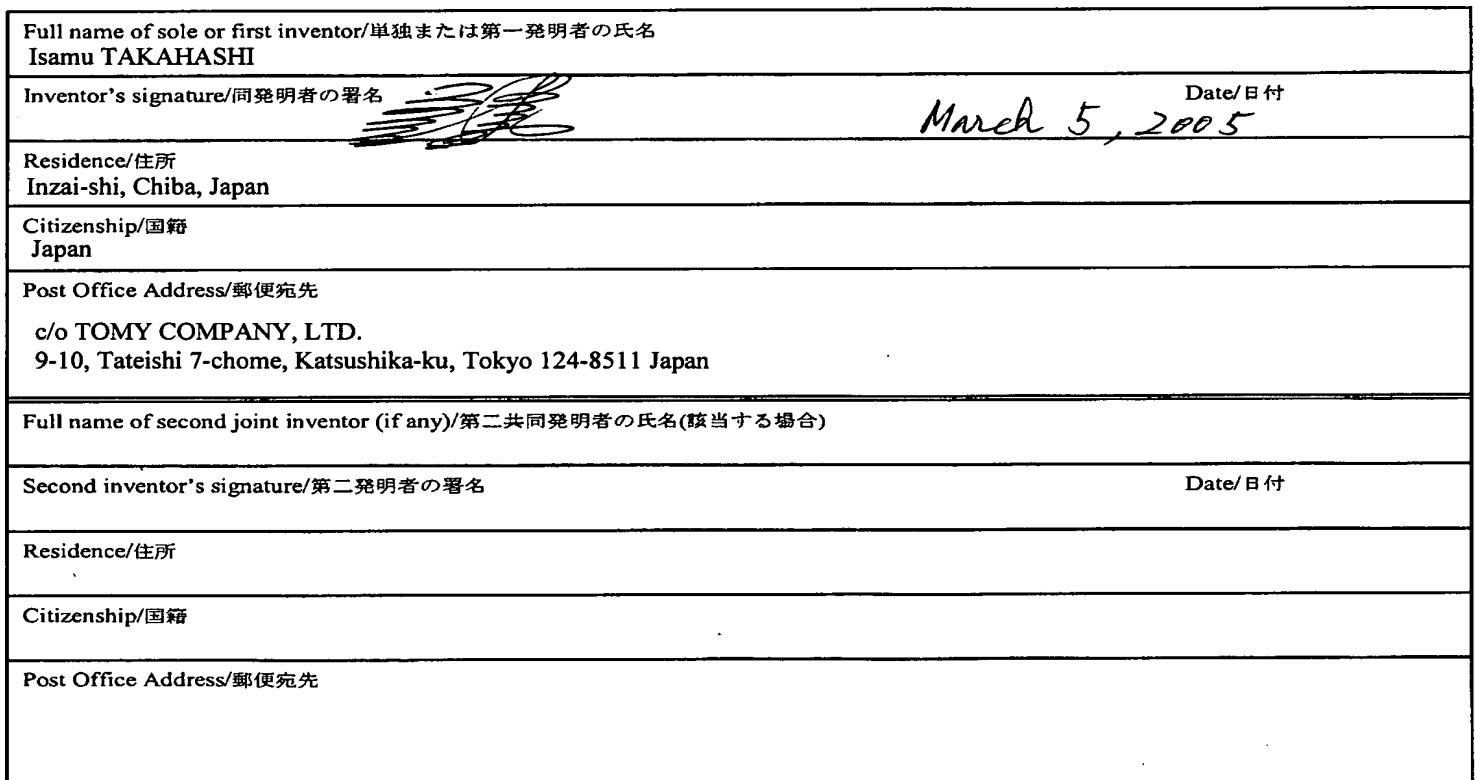 Full name of sole or first inventor/単独または第一発明者の氏名
Isamu TAKAHASHI
Inventor's signature/同発明者の署名
Date/日付
March 5, 2005
Residence/住所
Inzai-shi, Chiba, Japan
Citizenship/国籍
Japan
Post Office Address/郵便宛先
c/o TOMY COMPANY, LTD.
9-10, Tateishi 7-chome, Katsushika-ku, Tokyo 124-8511 Japan
Full name of second joint inventor (if any)/第二共同発明者の氏名(該当する場合)
Second inventor's signature/第二発明者の署名
Date/日付
Residence/住所
Citizenship/国籍
Post Office Address/郵便宛先